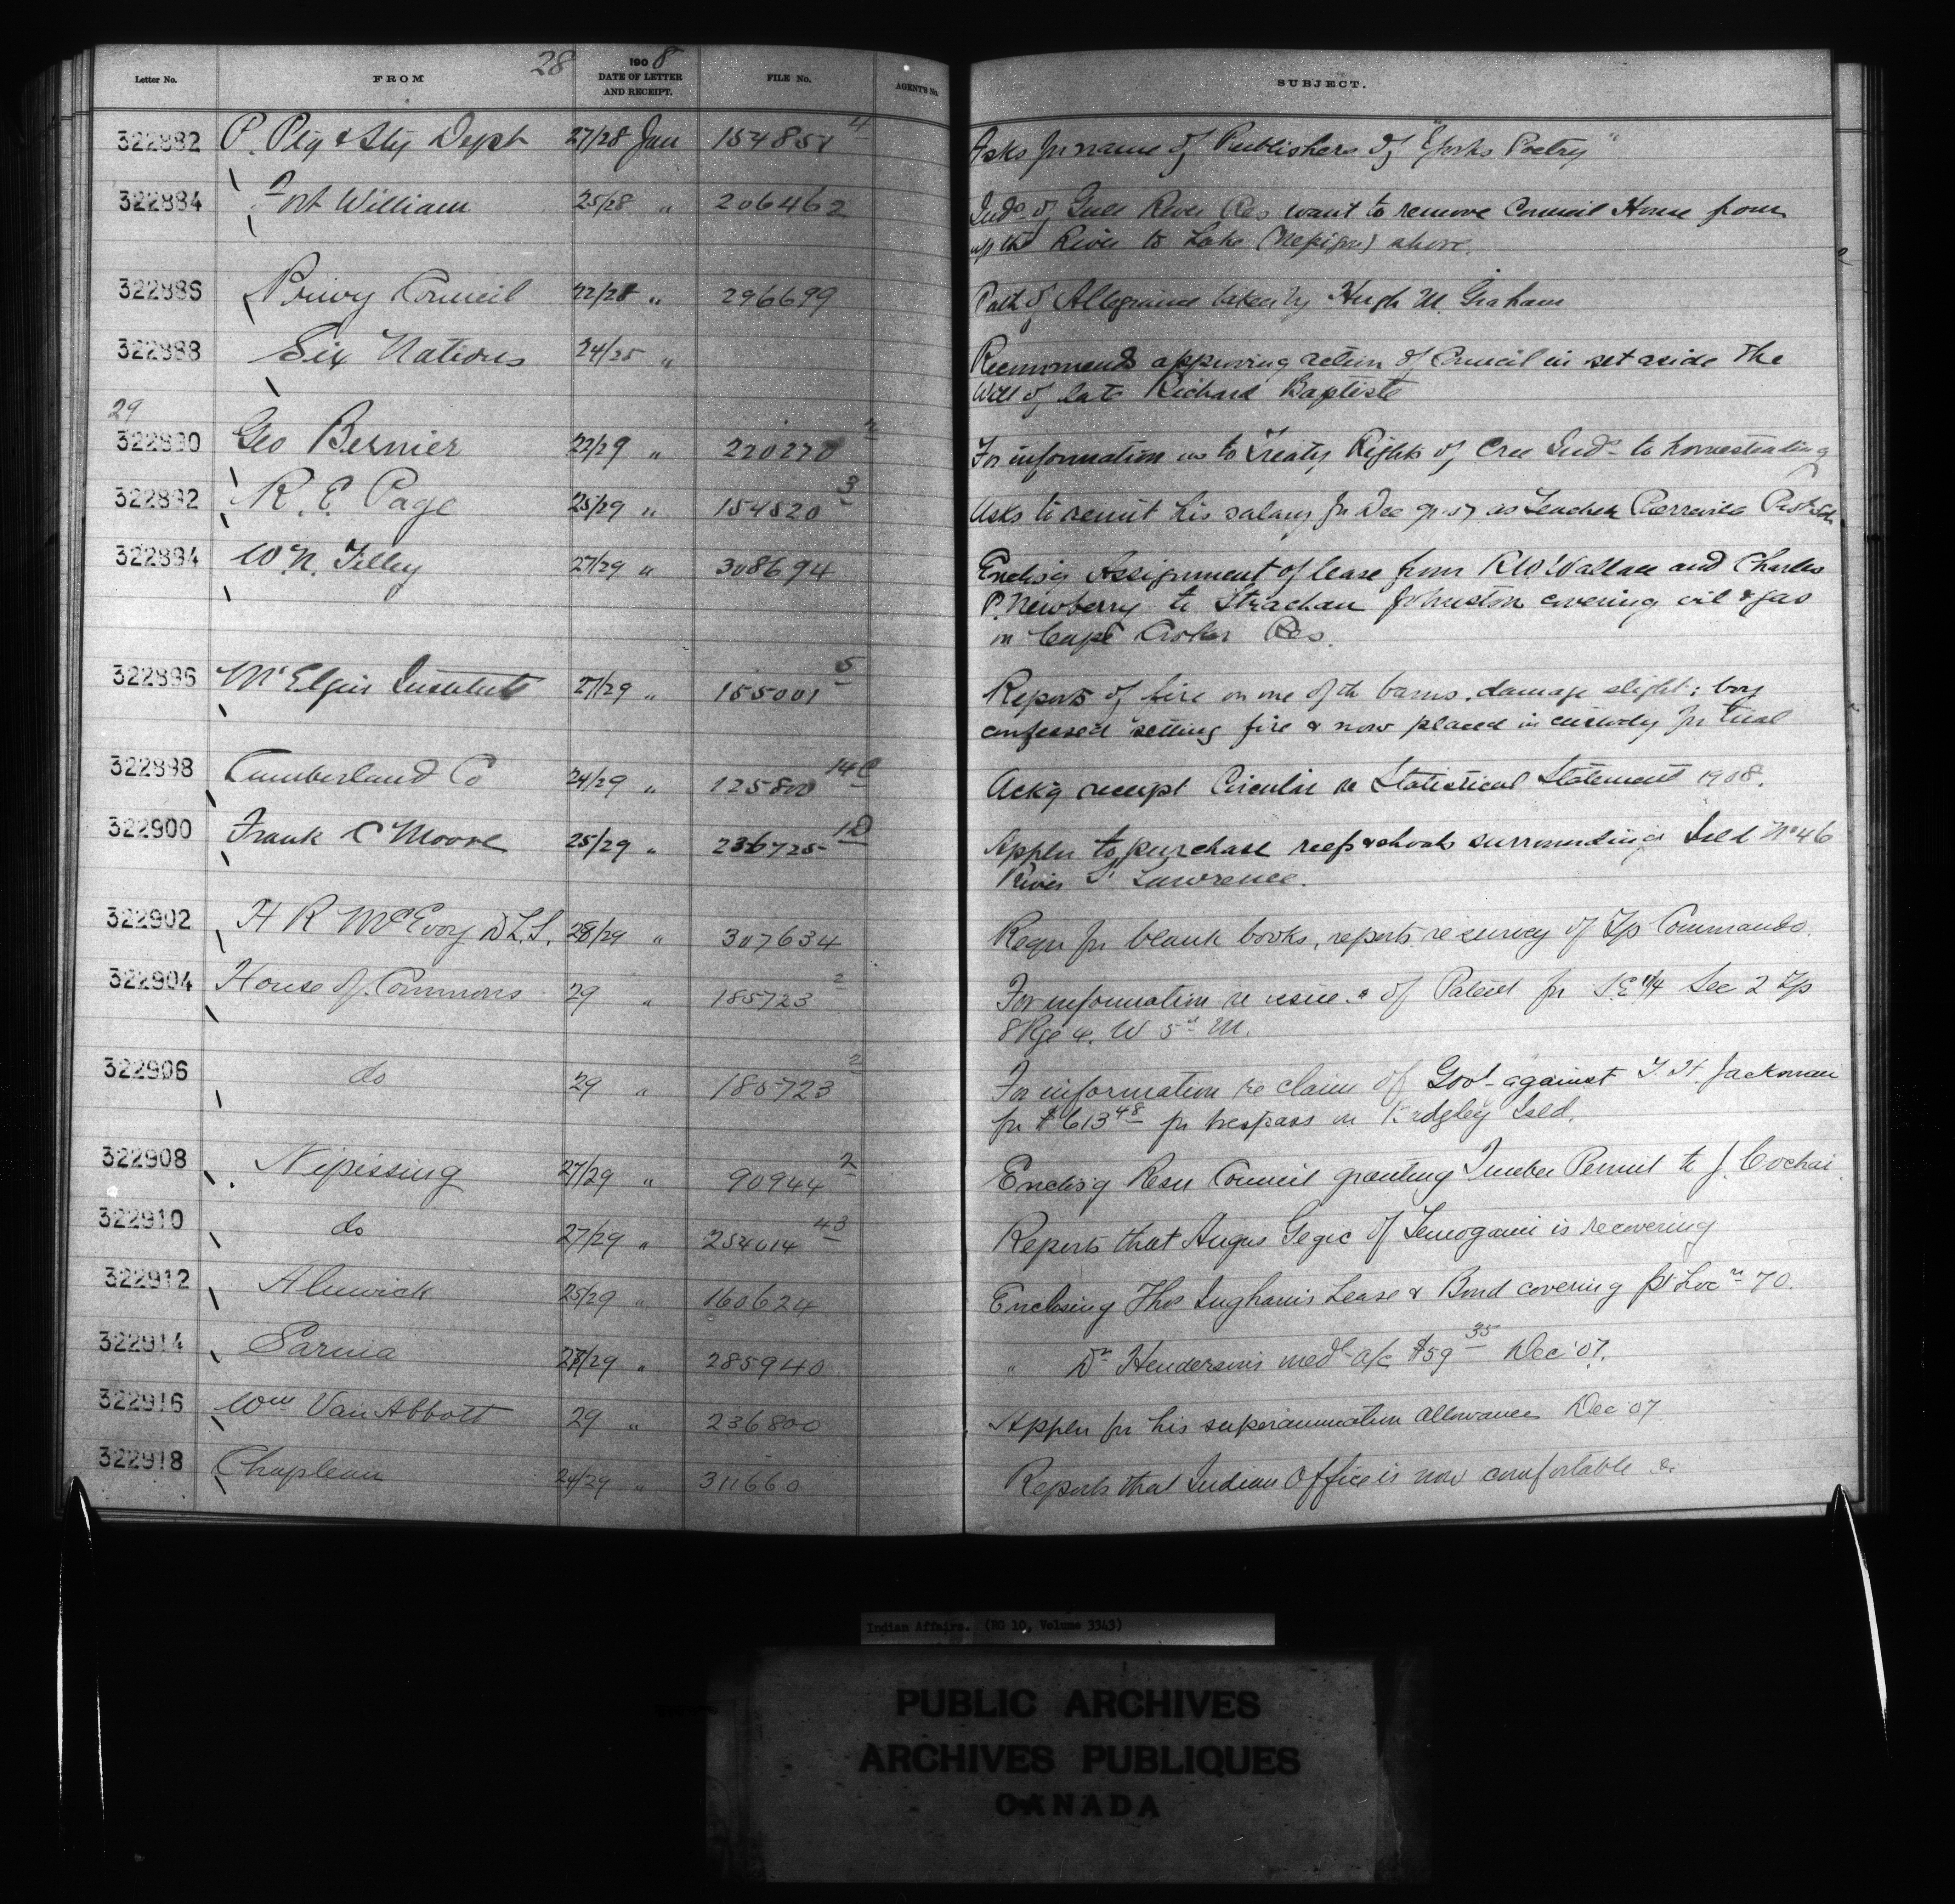 Letter No. FROM 28 1908 DATE OF LETTER AND RECEIPT. FILE No. AGENT'S No. SUBJECT.
322882 P. Ptg & Sty Dept 27/28 Jan 154851 4 Asks for name of Publishers of "Yorks Poetry"
322884 Fort William 25/28 " 206462 Inds of Gull River Res want to remove Council House from
up the River to Lake (Nepigon) above.
322886 Privy Council 22/28 " 296699 Oath of Allegiance taken by Hugh M. Graham
322888 Six Nations 24/25 " Recommends approving action of Council in set aside the
Will of late Richard Baptiste
29
322890 Geo Bernier 22/29 " 220270 2 For information as to Treaty Rights of Cree Inds to homesteading
322892 R. E. Page 25/29 " 154520 3 Asks to remit his salary for Dec as Teacher Pierreville
322894 W. N. Tilley 27/29 " 308694 Enclos'g Assignment of lease from R W Wallace and Charles
P. Newberry to Strachan Johnston covering oil & gas
in Cape Croker Res.
322896 Mt Elgin Institute 27/29 " 155001 5 Reports of fire on one of th barns, damage slight; boy
confessed setting fire & now placed in custody for trial
322898 Cumberland Co 24/29 " 125800 14 C Ack'g receipt Circular re Statistical Statement 1908.
322900 Frank C Moore 25/29 " 236725 1D Appln to purchase reef & shoals surrounding Isld No 46
River St Lawrence.
322902 H R McEvoy D.L.S. 28/29 " 307634 Requ for blank books, reports re survey of Tp Commando.
322904 House of Commons 29 " 185723 2 For information re issue of Patent for S.E 1/4 Sec 2 Tp
8 Rge 4. W 5th M.
322906 do 29 " 185723 2 For information re claim of Govt against T. H. Jackman
for $613 48 for trespass on Isld.
322908 Nipissing 27/29 " 90944 2 Enclos'g Resn Council granting Timber Permit to J. Cochai
322910 do 27/29 " 254014 43 Reports that Angus Gegic of Temogami is recovering
322912 Alnwick 25/29 " 160624 Enclosing Thos Ingham's Lease & Bond covering pt Locn 70.
322914 Sarnia 27/29 " 285940 " Dr Henderson's medl a/c $59 35 Dec '07.
322916 Wm Van Abbott 29 " 236800 Appln for his superannuation allowance Dec '07
322918 Chapleau 24/29 " 311660 Reports that Indian Office is now comfortable &c
Indian Affairs. (RG 10, Volume 3343)
PUBLIC ARCHIVES
ARCHIVES PUBLIQUES
CANADA